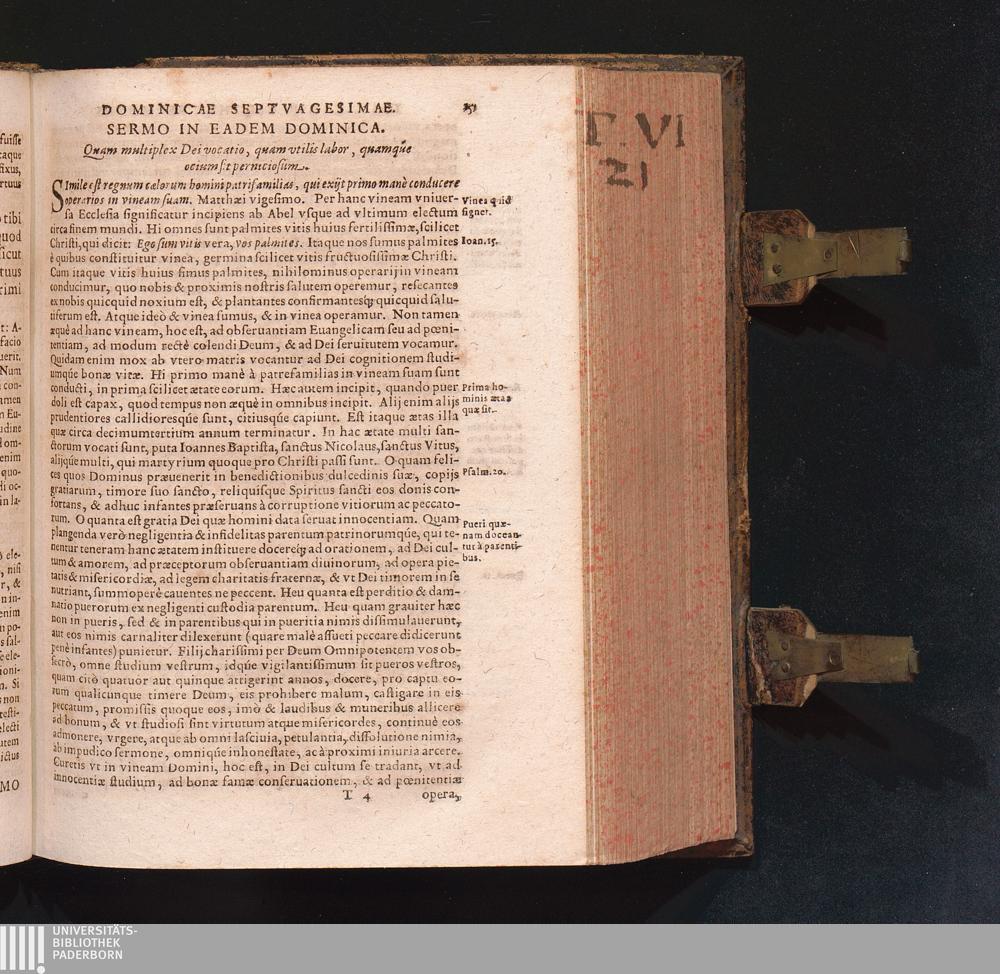 fuisse
taque
fixus,
rtuus
tibi
quod
sicut
tuus
rimi
t: A-
facio
uerit.
Num
i con-
tamen
n Eu-
udine
d om-
enim
quo-
di oc-
in la-
ò ele-
, nisi
r, &
n in-
enim
n po-
s sal-
e ele-
ioni-
m. Si
s non
testi-
electi
utem
ictus
MO
DOMINICAE SEPTVAGESIMAE. 251
SERMO IN EADEM DOMINICA.
Quam multiplex Dei vocatio, quam vtilis labor, quamq́ue
ocium sit perniciosum.
SImile est regnum cælorum homini patrifamilias, qui exijt primo manè conducere
operarios in vineam suam. Matthæi vigesimo. Per hanc vineam vniuer-
sa Ecclesia significatur incipiens ab Abel vsque ad vltimum electum
circa finem mundi. Hi omnes sunt palmites vitis huius fertilissimæ, scilicet
Christi, qui dicit: Ego sum vitis vera, vos palmites. Itaque nos sumus palmites
è quibus constituitur vinea, germina scilicet vitis fructuosissimæ Christi.
Cum itaque vitis huius simus palmites, nihilominus operarij in vineam
conducimur, quo nobis & proximis nostris salutem operemur, resecantes
ex nobis quicquid noxium est, & plantantes confirmantesq́; quicquid salu-
tiferum est. Atque ideò & vinea sumus, & in vinea operamur. Non tamen
æquè ad hanc vineam, hoc est, ad obseruantiam Euangelicam seu ad pœni-
tentiam, ad modum rectè colendi Deum, & ad Dei seruitutem vocamur.
Quidam enim mox ab vtero matris vocantur ad Dei cognitionem studi-
umq́ue bonæ vitæ. Hi primo manè à patrefamilias in vineam suam sunt
conducti, in prima scilicet ætate eorum. Hæc autem incipit, quando puer
doli est capax, quod tempus non æquè in omnibus incipit. Alij enim alijs
prudentiores callidioresq́ue sunt, citiusq́ue capiunt. Est itaque ætas illa
quæ circa decimumtertium annum terminatur. In hac ætate multi san-
ctorum vocati sunt, puta Ioannes Baptista, sanctus Nicolaus, sanctus Vitus,
alijq́ue multi, qui martyrium quoque pro Christi passi sunt. O quam feli-
ces quos Dominus præuenerit in benedictionibus dulcedinis suæ, copijs
gratiarum, timore suo sancto, reliquisque Spiritus sancti eos donis con-
fortans, & adhuc infantes præseruans à corruptione vitiorum ac peccato-
rum. O quanta est gratia Dei quæ homini data seruat innocentiam. Quam
plangenda verò negligentia & infidelitas parentum patrinorumq́ue, qui te-
nentur teneram hanc ætatem instituere docereq́; ad orationem, ad Dei cul-
tum & amorem, ad præceptorum obseruantiam diuinorum, ad opera pie-
tatis & misericordiæ, ad legem charitatis fraternæ, & vt Dei timorem in se
nutriant, summoperè cauentes ne peccent. Heu quanta est perditio & dam-
natio puerorum ex negligenti custodia parentum. Heu quam grauiter hæc
non in pueris, sed & in parentibus qui in pueritia nimis dissimulauerunt,
aut eos nimis carnaliter dilexerunt (quare malè assueti peccare didicerunt
penè infantes) punietur. Filij charissimi per Deum Omnipotentem vos ob-
secrò, omne studium vestrum, idq́ue vigilantissimum sit pueros vestros,
quam citò quatuor aut quinque attigerint annos, docere, pro captu eo-
rum qualicunque timere Deum, eis prohibere malum, castigare in eis
peccatum, promissis quoque eos, imò & laudibus & muneribus allicere
ad bonum, & vt studiosi sint virtutum atque misericordes, continuè eos
admonere, vrgere, atque ab omni lasciuia, petulantia, dissolutione nimia,
ab impudico sermone, omniq́ue inhonestate, ac à proximi iniuria arcere.
Curetis vt in vineam Domini, hoc est, in Dei cultum se tradant, vt ad
innocentiæ studium, ad bonæ famæ conseruationem, & ad pœnitentiæ
T 4 opera,
Vinea quid
signet.
Ioan. 15.
Prima ho-
minis ætas
quæ sit.
Psalm. 20.
Pueri quæ-
nam docean-
tur à parenti-
bus.
T. VI
21
UNIVERSITÄTS-
BIBLIOTHEK
PADERBORN